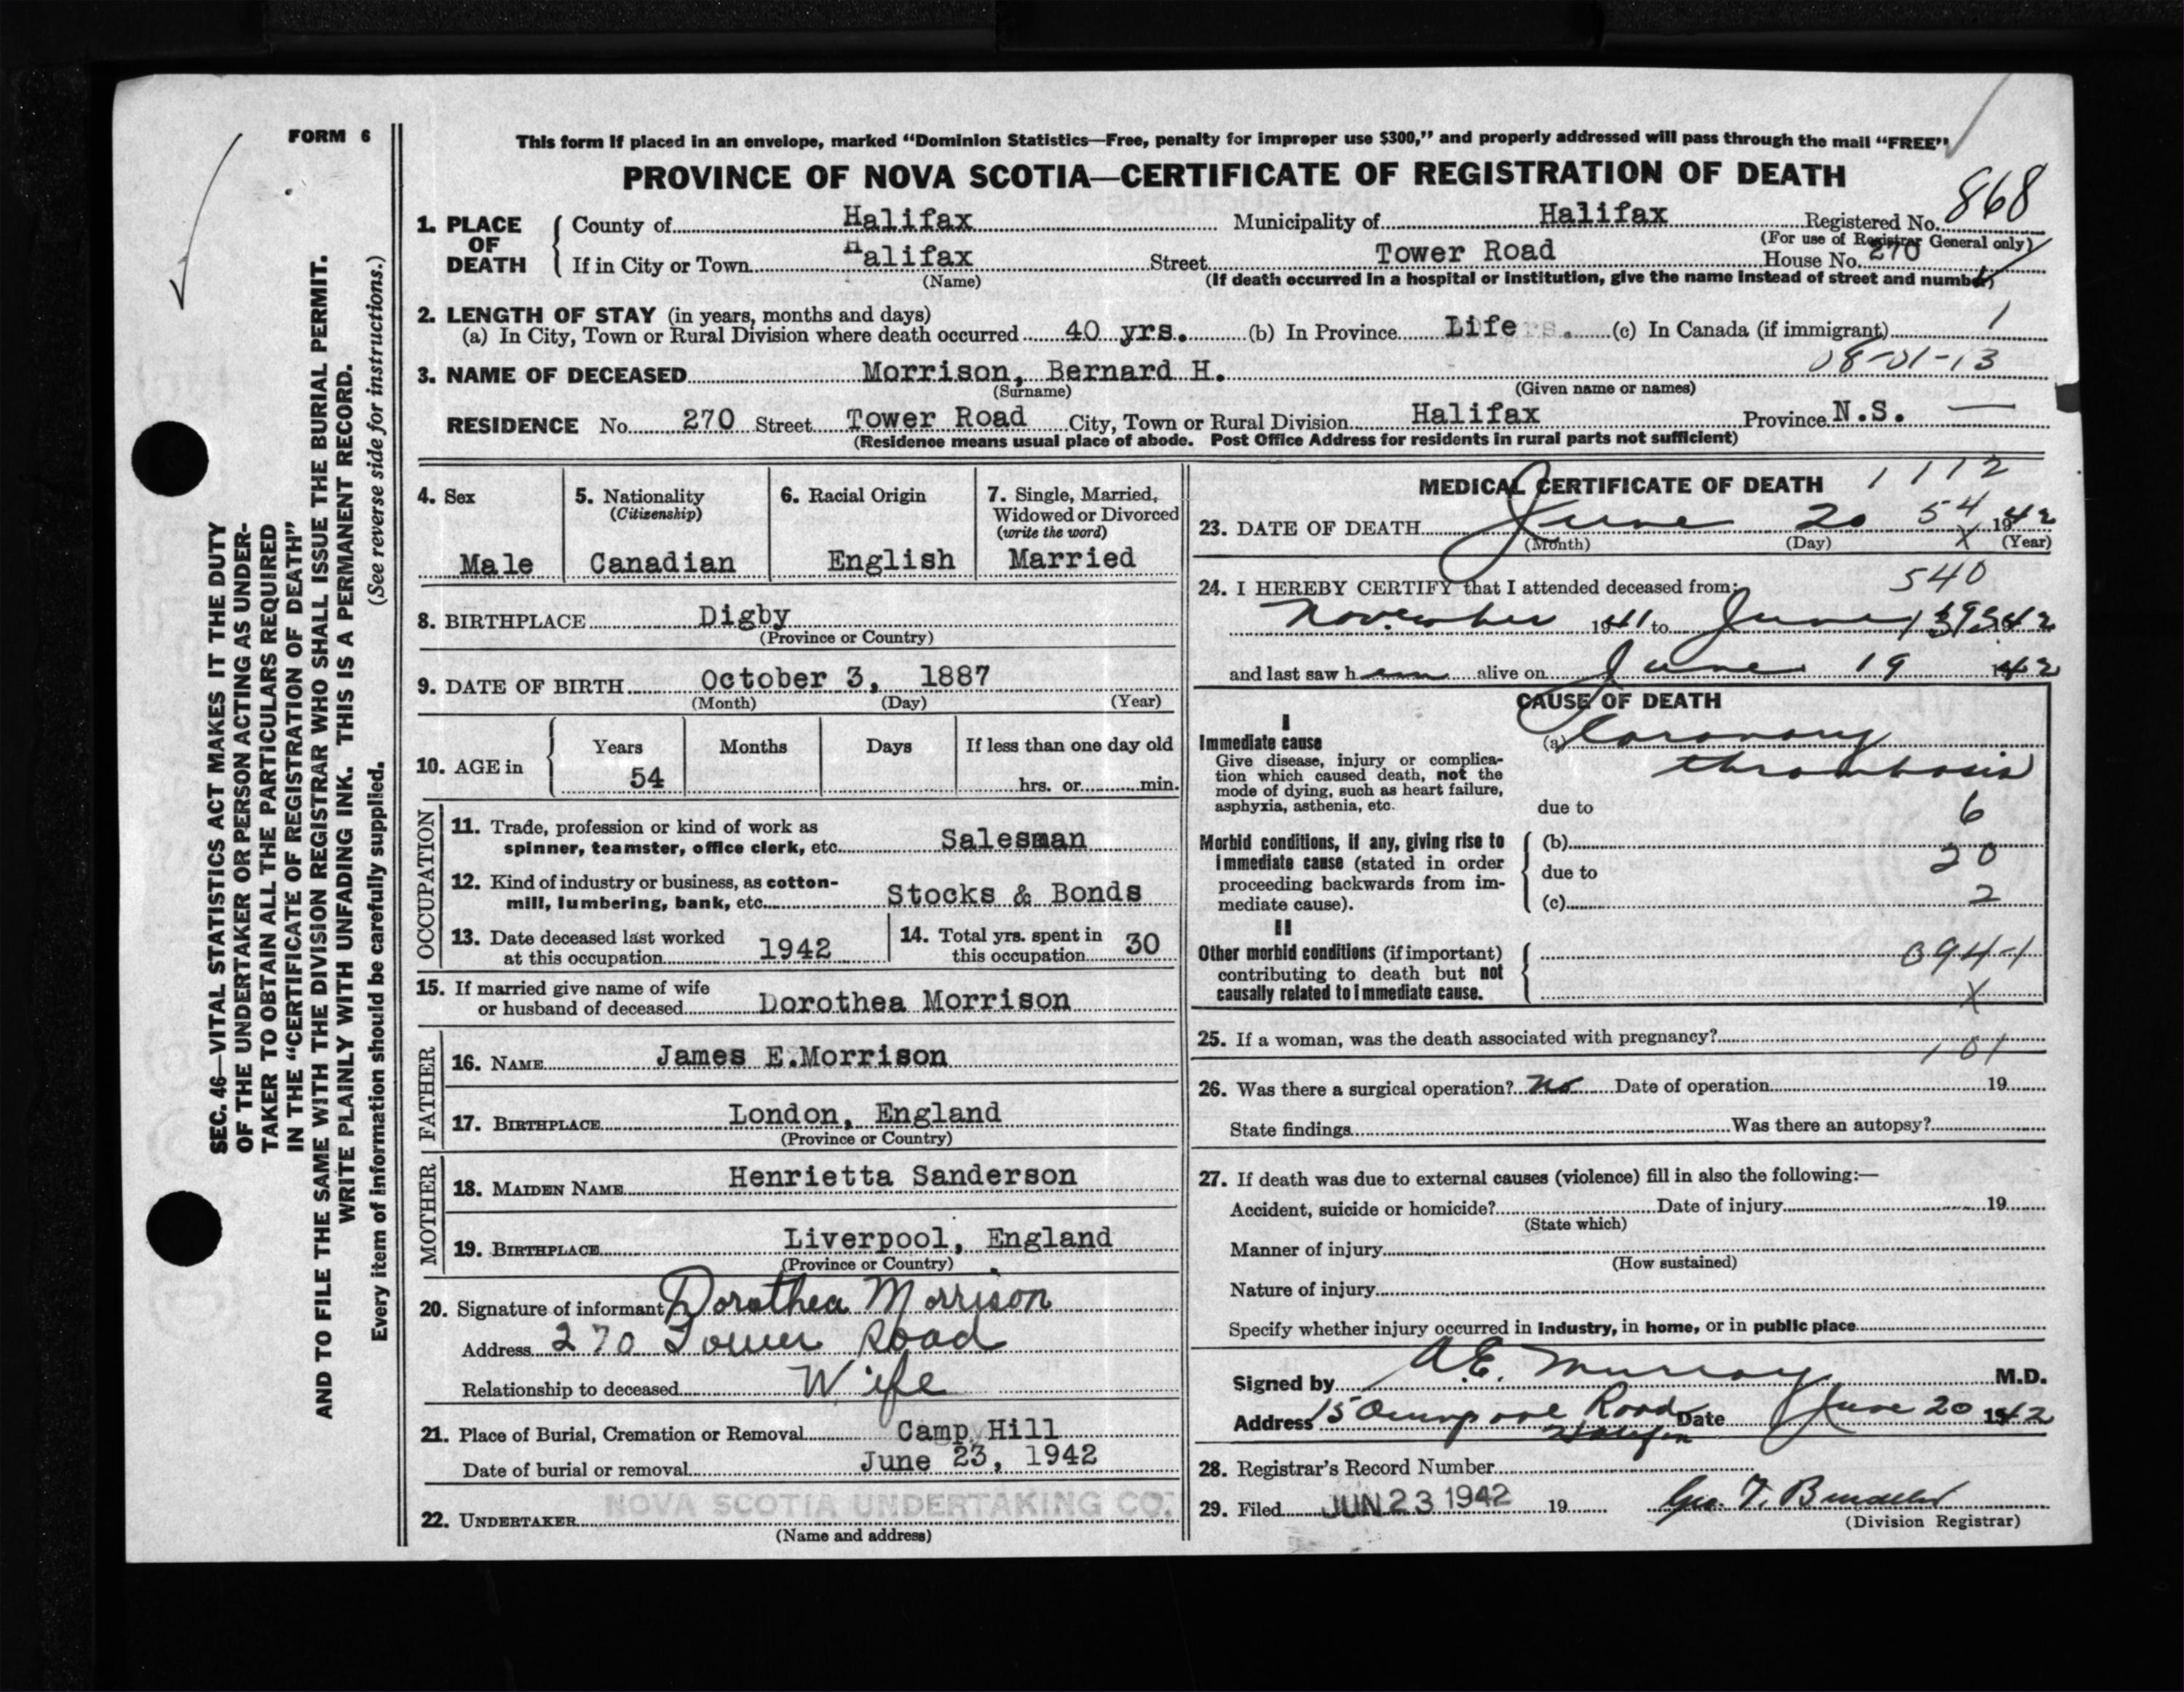 FORM 6
This form if placed in an envelope, marked "Dominion Statistics—Free, penalty for improper use $300," and properly addressed will pass through the mail "FREE"
PROVINCE OF NOVA SCOTIA—CERTIFICATE OF REGISTRATION OF DEATH
868
1. PLACE OF DEATH
County of Halifax Municipality of Halifax Registered No.
(For use of Registrar General only)
If in City or Town Halifax Street Tower Road House No. 270
(Name) (If death occurred in a hospital or institution, give the name instead of street and number)
2. LENGTH OF STAY (in years, months and days)
(a) In City, Town or Rural Division where death occurred 40 yrs. (b) In Province Life (c) In Canada (if immigrant) 1
08-01-13
3. NAME OF DECEASED Morrison, Bernard H.
(Surname) (Given name or names)
RESIDENCE No. 270 Street Tower Road City, Town or Rural Division Halifax Province N.S. —
(Residence means usual place of abode. Post Office Address for residents in rural parts not sufficient)
4. Sex
Male
5. Nationality
(Citizenship)
Canadian
6. Racial Origin
English
7. Single, Married,
Widowed or Divorced
(write the word)
Married
8. BIRTHPLACE Digby
(Province or Country)
9. DATE OF BIRTH October 3, 1887
(Month) (Day) (Year)
10. AGE in
Years Months Days If less than one day old
54 hrs. or min.
OCCUPATION
11. Trade, profession or kind of work as
spinner, teamster, office clerk, etc. Salesman
12. Kind of industry or business, as cotton-
mill, lumbering, bank, etc. Stocks & Bonds
13. Date deceased last worked
at this occupation 1942
14. Total yrs. spent in
this occupation 30
15. If married give name of wife
or husband of deceased Dorothea Morrison
FATHER
16. NAME James E.Morrison
17. BIRTHPLACE London, England
(Province or Country)
MOTHER
18. MAIDEN NAME Henrietta Sanderson
19. BIRTHPLACE Liverpool, England
(Province or Country)
20. Signature of informant Dorothea Morrison
Address 270 Tower Road
Relationship to deceased Wife
21. Place of Burial, Cremation or Removal Camp Hill
Date of burial or removal June 23, 1942
NOVA SCOTIA UNDERTAKING CO.
22. UNDERTAKER
(Name and address)
MEDICAL CERTIFICATE OF DEATH 1112
54
23. DATE OF DEATH June 20 1942
(Month) (Day) X (Year)
24. I HEREBY CERTIFY that I attended deceased from:
540
November 1941 to June 19 1942
and last saw him alive on June 19 1942
CAUSE OF DEATH
I
Immediate cause
Give disease, injury or complica-
tion which caused death, not the
mode of dying, such as heart failure,
asphyxia, asthenia, etc.
(a) Coronary
thrombosis
due to
6
Morbid conditions, if any, giving rise to
immediate cause (stated in order
proceeding backwards from im-
mediate cause).
(b)
20
due to
2
(c)
II
Other morbid conditions (if important)
contributing to death but not
causally related to immediate cause.
094-1
X
25. If a woman, was the death associated with pregnancy?
101
26. Was there a surgical operation? No Date of operation 19
State findings Was there an autopsy?
27. If death was due to external causes (violence) fill in also the following:—
Accident, suicide or homicide? Date of injury 19
(State which)
Manner of injury
(How sustained)
Nature of injury
Specify whether injury occurred in industry, in home, or in public place
Signed by A.E. Murray M.D.
Address 15 Road Date June 20 1942
Halifax
28. Registrar's Record Number
29. Filed JUN 23 1942 19
(Division Registrar)
SEC. 46—VITAL STATISTICS ACT MAKES IT THE DUTY
OF THE UNDERTAKER OR PERSON ACTING AS UNDER-
TAKER TO OBTAIN ALL THE PARTICULARS REQUIRED
IN THE "CERTIFICATE OF REGISTRATION OF DEATH"
AND TO FILE THE SAME WITH THE DIVISION REGISTRAR WHO SHALL ISSUE THE BURIAL PERMIT.
WRITE PLAINLY WITH UNFADING INK. THIS IS A PERMANENT RECORD.
Every item of information should be carefully supplied. (See reverse side for instructions.)